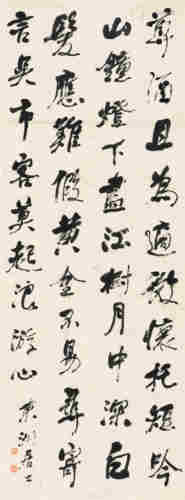 尊酒且為適懷托短吟
山鐘燈下盡江樹月中深白
髮應難假黃金不易尋寄
言吳市客莫起浪遊心
東洲居士